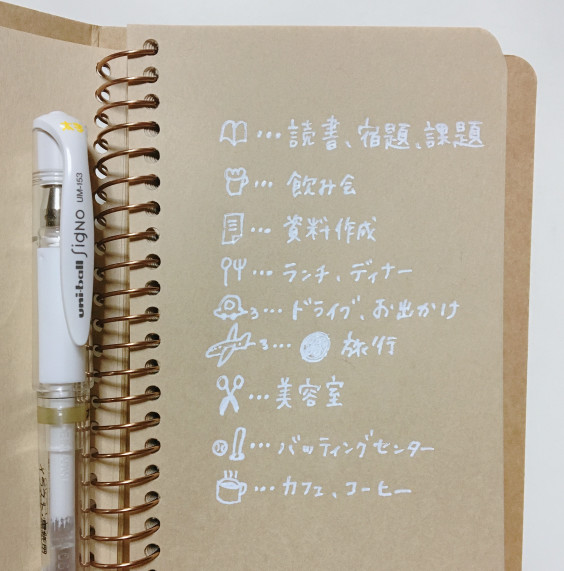 …読書、宿題、課題
…飲み会
…資料作成
…ランチ、ディナー
…ドライブ、お出かけ
…旅行
…美容室
…バッティングセンター
…カフェ、コーヒー
uni-ball Signo UM-153